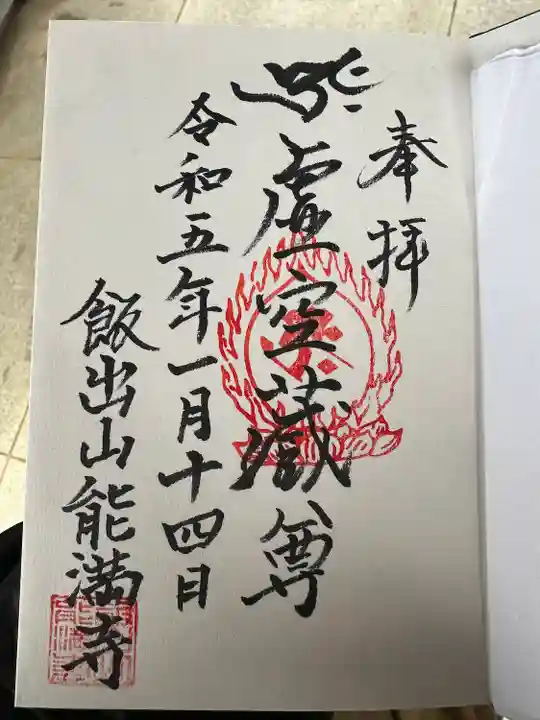 奉拝
虚空蔵尊
令和五年一月十四日
飯出山能満寺